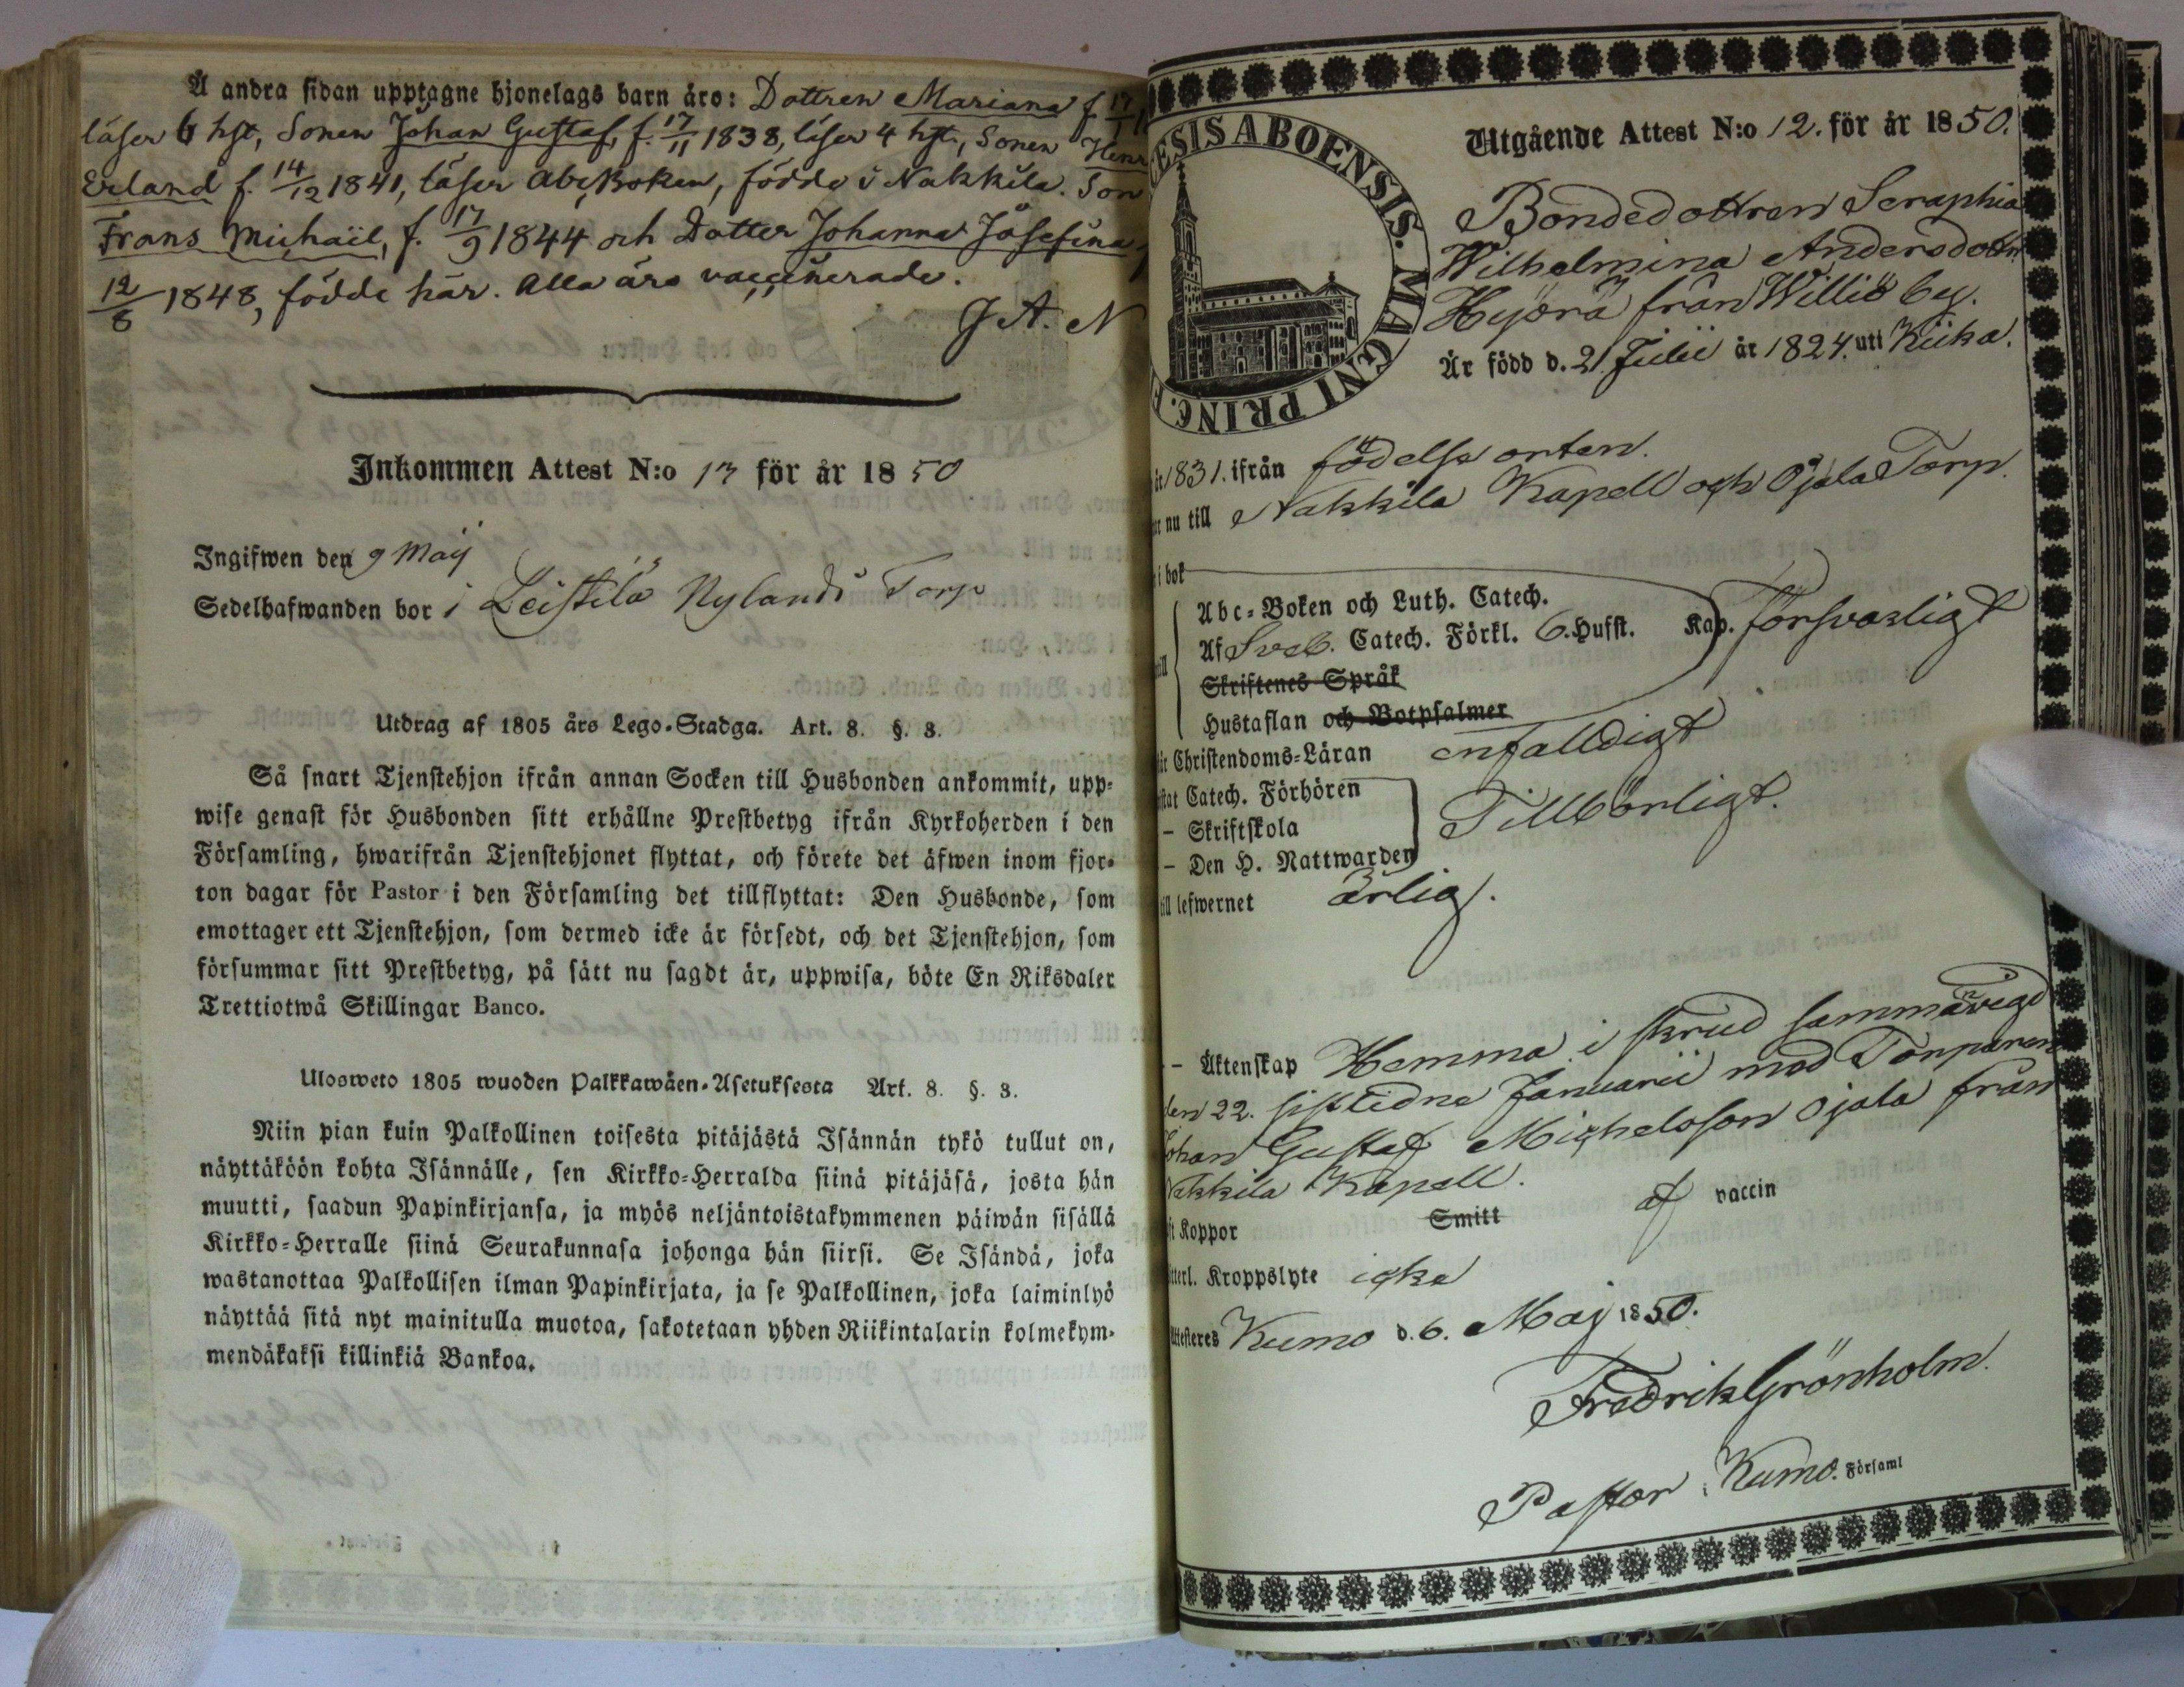 Å andra sidan upptagne hjonelags barn äro: Dottren Mariana f. 17/1
läser 6 hst, Sonen Johan Gustaf, f. 17/11 1838, läser 4 hst, Sonen Henr
Erland f. 14/12 1841, läser AbcBoken, födde i Nakkila. Son
Frans Michaël, f. 17/9 1844 och Dotter Johanna Josefina
12/8 1848, födde här. Alla äro vaccinerade.
J A. N
Inkommen Attest N:o 13 för år 1850
Ingifwen den 9 Maij
Sedelhafwanden bor i Leistilä Nylands Torp
Utdrag af 1805 års Lego-Stadga. Art. 8. §. 3.
Så snart Tjenstehjon ifrån annan Socken till Husbonden ankommit, upp-
wise genast för Husbonden sitt erhållne Prestbetyg ifrån Kyrkoherden i den
Församling, hwarifrån Tjenstehjonet flyttat, och förete det äfwen inom fjor-
ton dagar för Pastor i den Församling det tillflyttat: Den Husbonde, som
emottager ett Tjenstehjon, som dermed icke är försedt, och det Tjenstehjon, som
försummar sitt Prestbetyg, på sätt nu sagdt är, uppwisa, böte En Riksdaler
Trettiotwå Skillingar Banco.
Ulosweto 1805 wuoden Palkkawäen-Asetuksesta Art. 8. §. 3.
Niin pian kuin Palkollinen toisesta pitäjästä Isännän tykö tullut on,
näyttäköön kohta Isännälle, sen Kirkko-Herralda siinä pitäjäsä, josta hän
muutti, saadun Papinkirjansa, ja myös neljäntoistakymmenen päiwän sisällä
Kirkko-Herralle siinä Seurakunnasa johonga hän siirsi. Se Isändä, joka
wastanottaa Palkollisen ilman Papinkirjata, ja se Palkollinen, joka laiminlyö
näyttää sitä nyt mainitulla muotoa, sakotetaan yhden Riikintalarin kolmekym-
mendäkaksi killinkiä Bankoa.
ESIS ABOENSIS. MAGNI PRINC. F
Utgående Attest N:o 12. för år 1850.
Bondedottren Seraphia
Wilhelmina Andersdottr
Hyörä från Williö by.
Är född d. 21. Julii år 1824. uti Kiika.
år 1831. ifrån födelse orten.
ar nu till Nakkila Kapell och Ojala Torp.
i bok
Abc-Boken och Luth. Catech.
Af Sveb. Catech. Förkl. 6. Hufst. Kap. försvarligt
Skriftenes Språk
Hustaflan och Botpsalmer
Christendoms-Läran enfalldigt
Catech. Förhören
- Skriftskola
- Den H. Nattwarden
Tillbörligt.
till lefwernet ärlig.
- Äktenskap Hemma i skrud sammanvigd
den 22. sistledne Januarii med Torparen
Johan Gustaf Michelsson Ojala från
Nakkila Kapell.
Koppor Smitt af vaccin
Kroppslyte icke
Attesteres Kumo d. 6. Maj 1850.
Fredrik Grönholm.
Pastor i Kumo. Församl